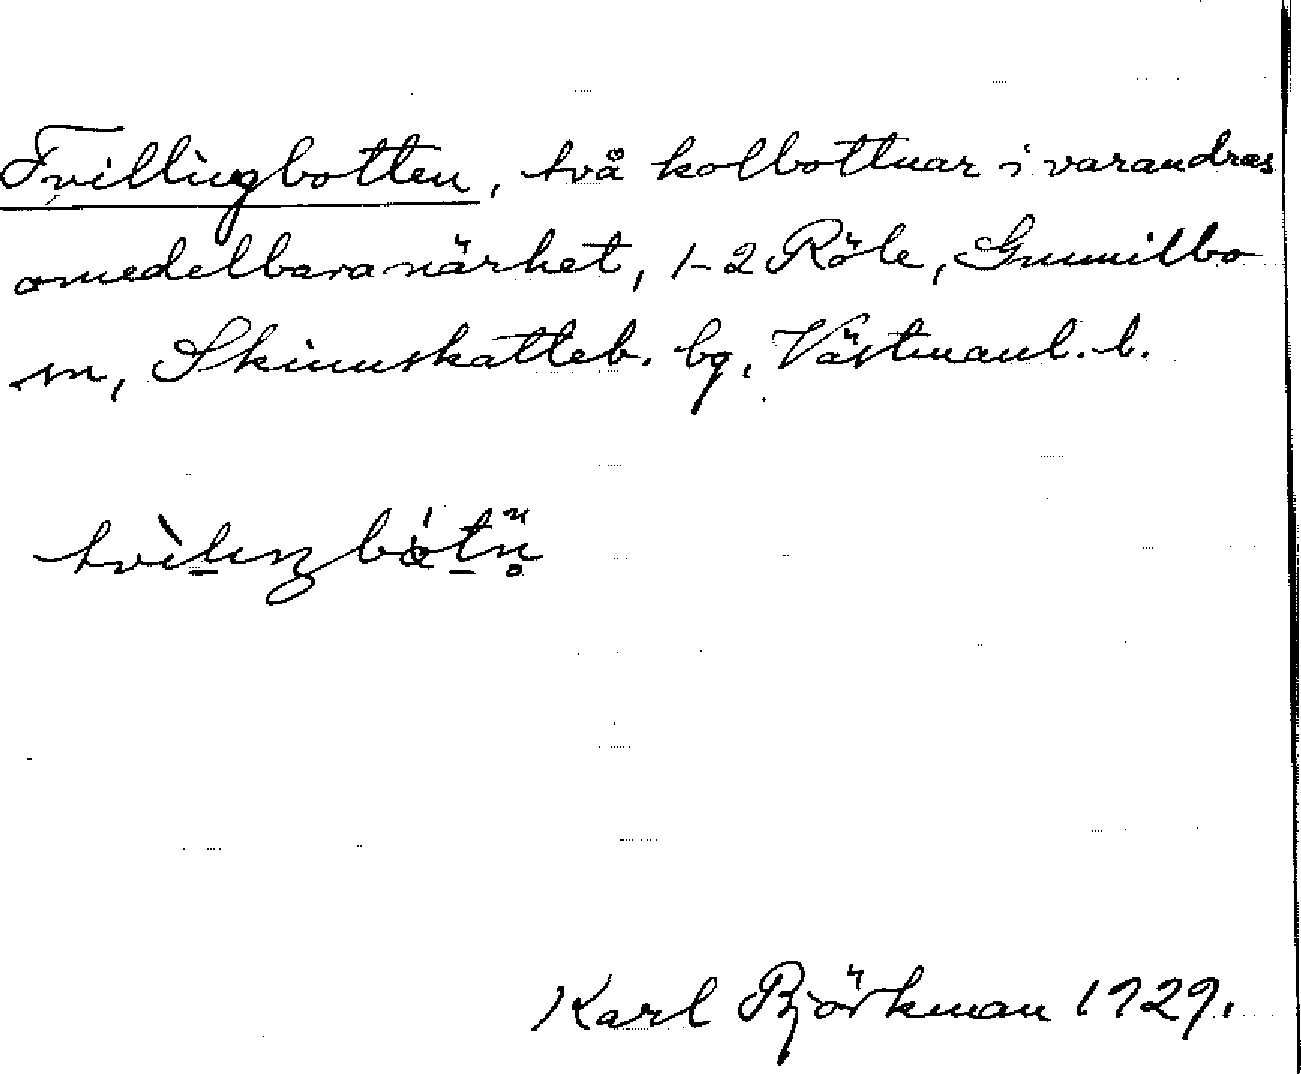 Tvillingbotten, två kolbottnar i varandras
omedelbara närhet, 1-2 Röle, Gunnilbo
sn, Skinnskatteb. bg, Västmanl. l.
Karl Björkman 1929.